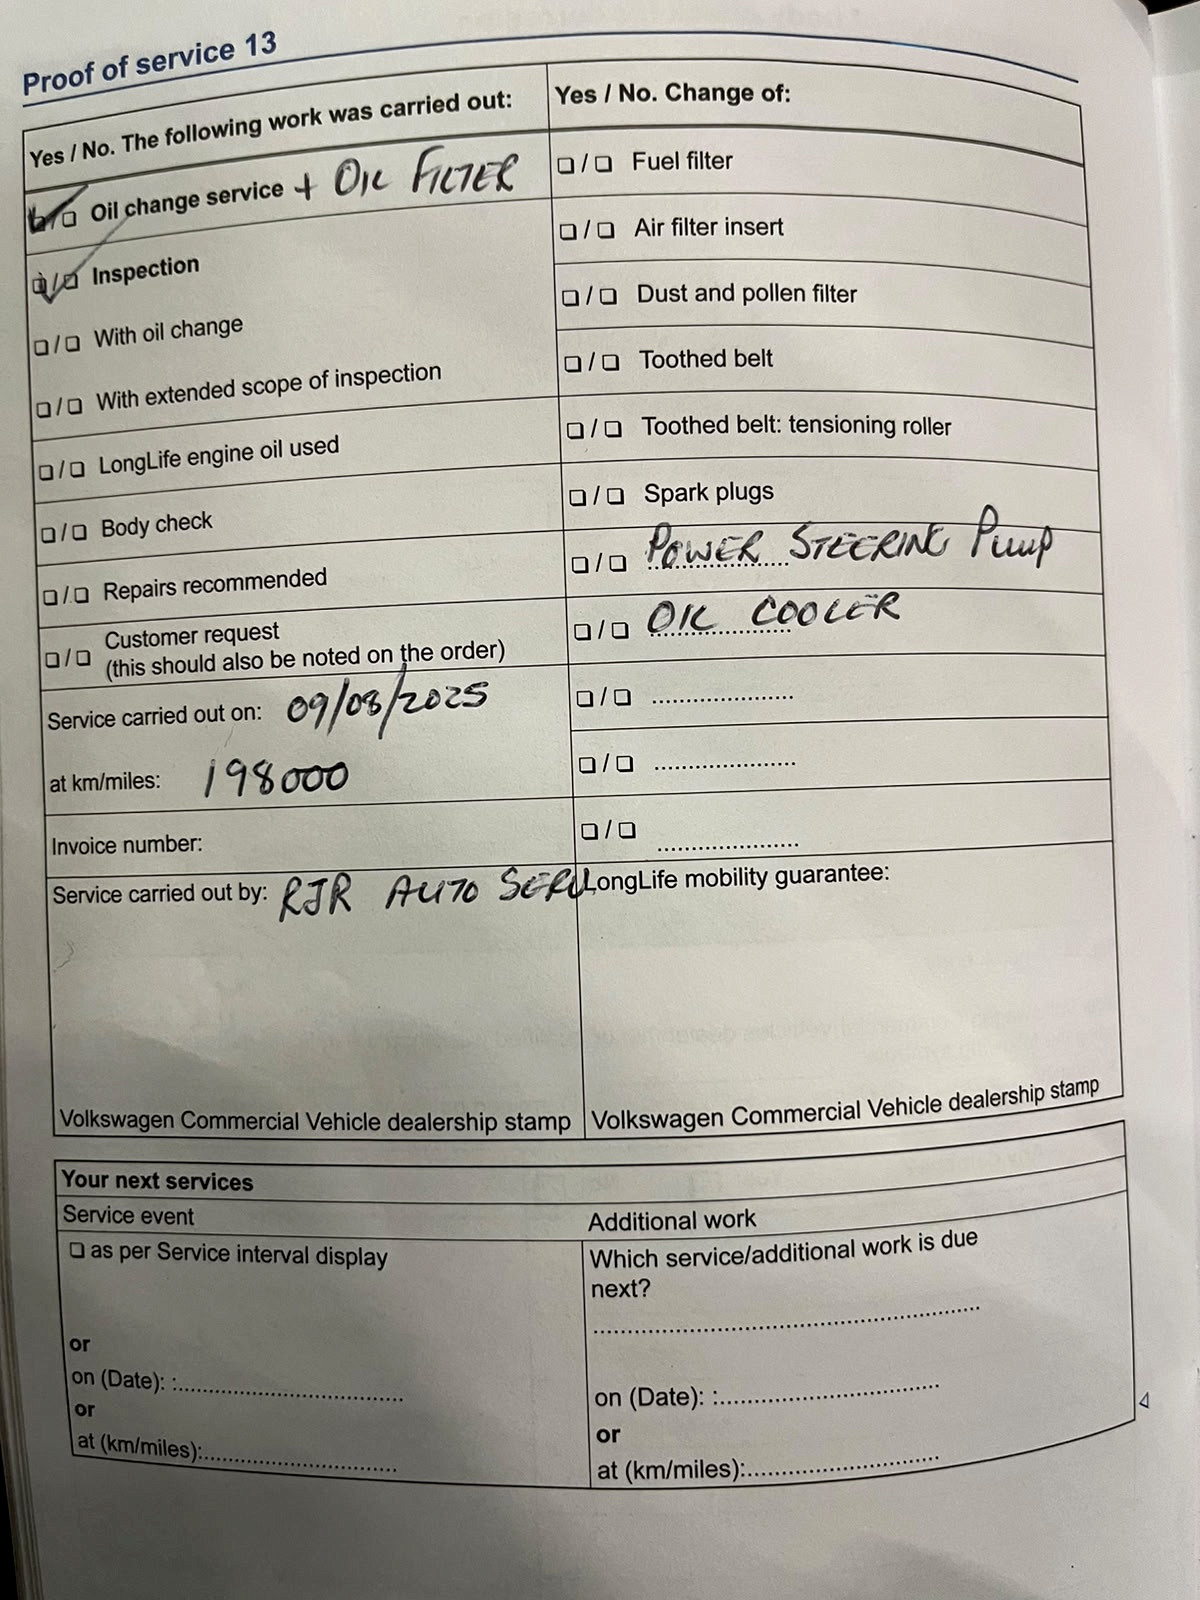 Proof of service 13
Yes / No. The following work was carried out:
☐/☐ Oil change service + OIL FILTER
☐/☐ Inspection
☐/☐ With oil change
☐/☐ With extended scope of inspection
☐/☐ LongLife engine oil used
☐/☐ Body check
☐/☐ Repairs recommended
☐/☐ Customer request
(this should also be noted on the order)
Service carried out on: 09/08/2025
at km/miles: 198000
Invoice number:
Service carried out by: RJR AUTO SERV
Volkswagen Commercial Vehicle dealership stamp
Yes / No. Change of:
☐/☐ Fuel filter
☐/☐ Air filter insert
☐/☐ Dust and pollen filter
☐/☐ Toothed belt
☐/☐ Toothed belt: tensioning roller
☐/☐ Spark plugs
☐/☐ POWER STEERING PUMP
☐/☐ OIL COOLER
☐/☐ ....................
☐/☐ ....................
☐/☐ ....................
LongLife mobility guarantee:
Volkswagen Commercial Vehicle dealership stamp
Your next services
Service event
☐ as per Service interval display
or
on (Date): :................................
or
at (km/miles):...........................
Additional work
Which service/additional work is due
next?
.......................................................
on (Date): :................................
or
at (km/miles):...........................